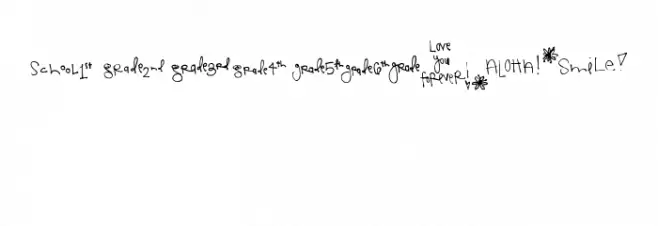 School 1st grade 2nd grade 3rd grade 4th grade 5th grade 6th grade Love you forever! ALOHA! Smile!